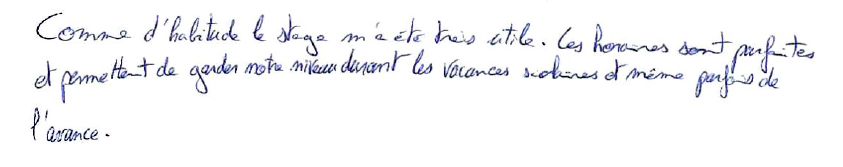 Comme d'habitude le stage m'a été très utile. Les horaires sont parfaites
et permettent de garder notre niveau durant les vacances scolaires et même parfois de
l'avance.